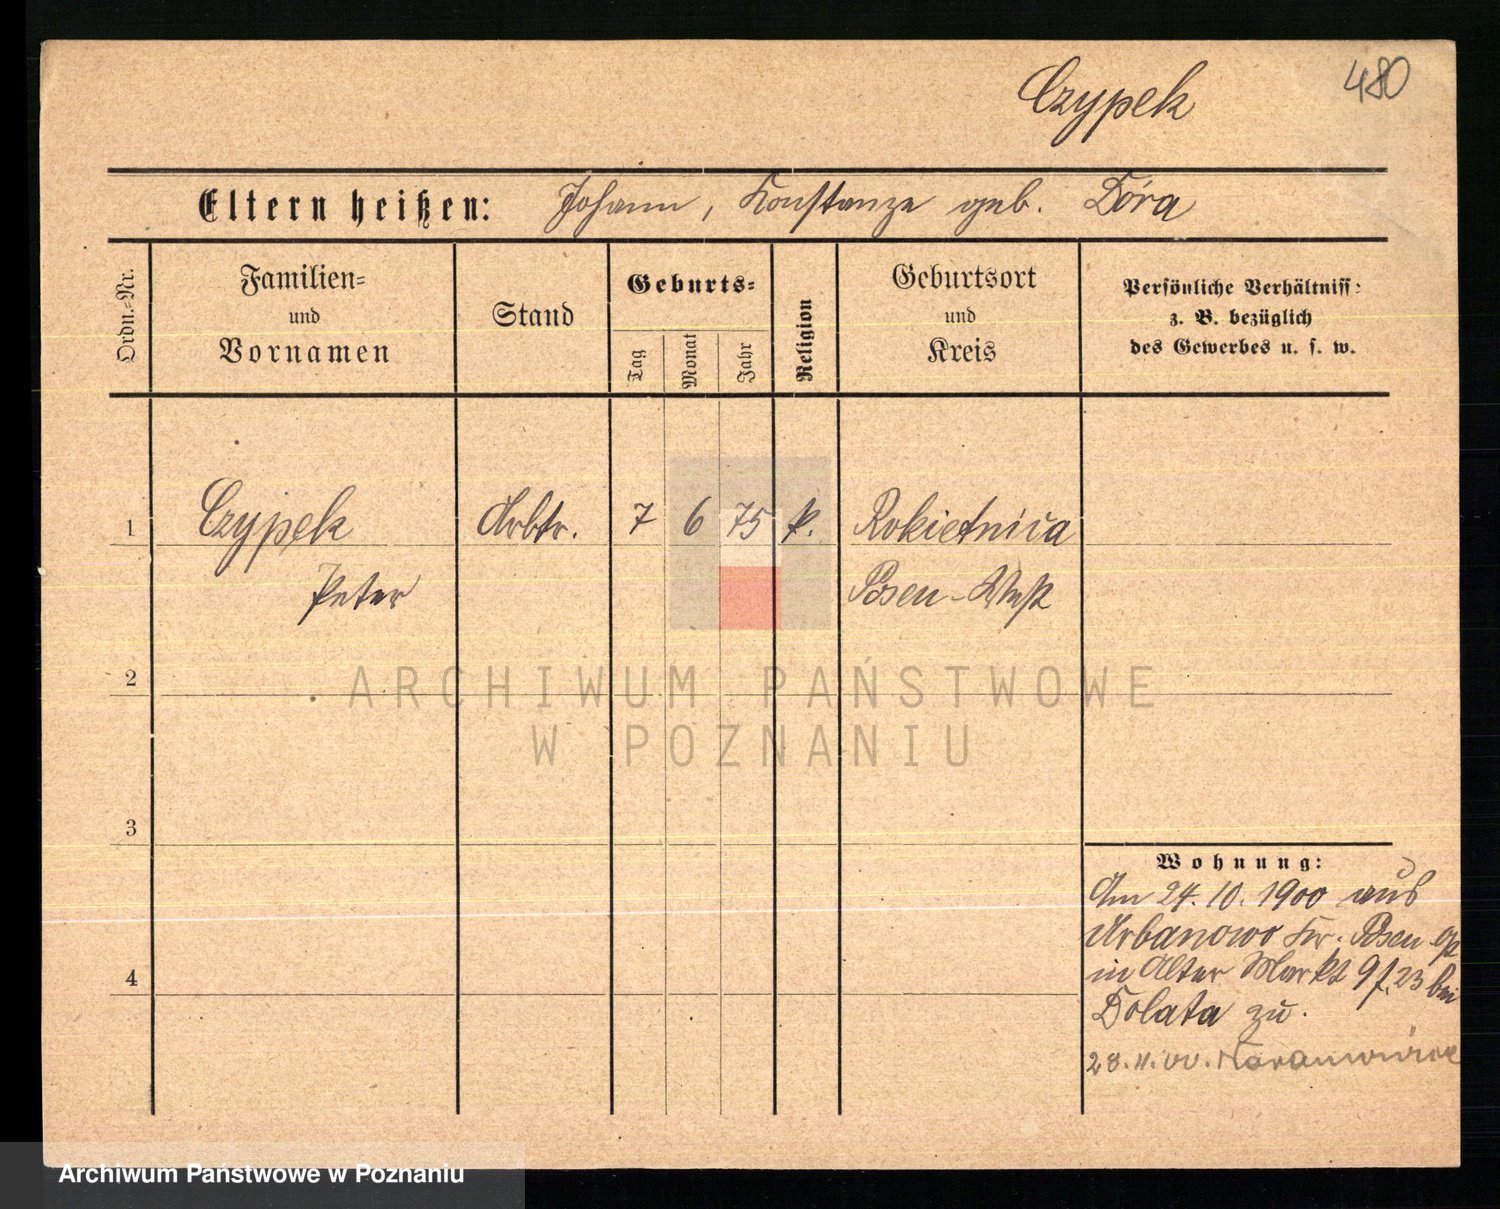 Czypek
480
Eltern heißen: Johann, Konstanze geb. Dóra
Ordn.-Nr.
Familien-
und
Vornamen
Stand
Geburts-
Tag
Monat
Jahr
Religion
Geburtsort
und
Kreis
Persönliche Verhältniss-
z. B. bezüglich
des Gewerbes u. s. w.
1 Czypek Arbtr. 7 6 75 k. Rokietnica
Peter Posen-West
2
3
4
Wohnung:
Am 24. 10. 1900 aus
Urbanowo Kr. Posen
in Alter Markt 9 f. 23 bei
Dolata zu.
28. 11. 00.
ARCHIWUM PAŃSTWOWE
W POZNANIU
Archiwum Państwowe w Poznaniu